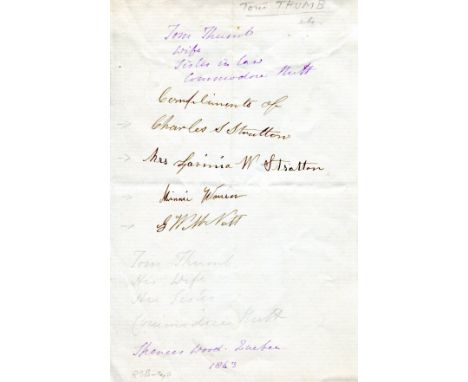 Tom THUMB
Tom Thumb
Wife
Sister in law
Commodore Nutt
Compliments of
Charles S Stratton
Mrs Lavinia W Stratton
Minnie Warren
G W M Nutt
Tom Thumb.
His Wife
Her Sister
Commodore Nutt
Wood. Quebec
1863